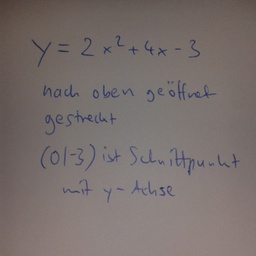 y = 2x² + 4x - 3
nach oben geöffnet
gestreckt
(0|-3) ist Schnittpunkt
mit y-Achse